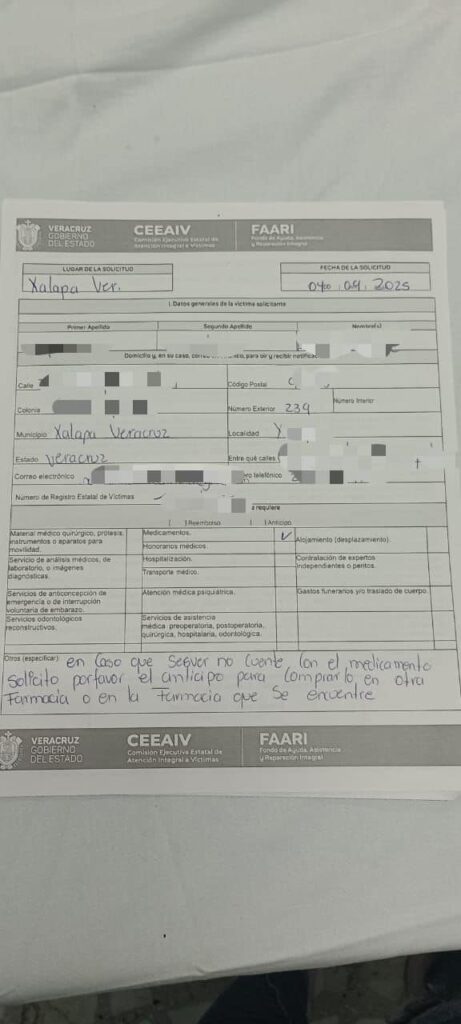 VERACRUZ
GOBIERNO
DEL ESTADO
CEEAIV
Comisión Ejecutiva Estatal de
Atención Integral a Víctimas
FAARI
Fondo de Ayuda, Asistencia
y Reparación Integral
LUGAR DE LA SOLICITUD
Xalapa Ver.
FECHA DE LA SOLICITUD
09. 2025
I. Datos generales de la víctima solicitante
Primer Apellido Segundo Apellido Nombre(s)
Domicilio y, en su caso, para oír y recibir
Calle
Código Postal
Colonia
Número Exterior 239
Número Interior
Municipio Xalapa Veracruz
Localidad
Estado Veracruz
Entre qué calles
Correo electrónico
telefónico
Número de Registro Estatal de Víctimas
requiere
[ ] Reembolso [ ] Anticipo
Material médico quirúrgico, prótesis,
instrumentos o aparatos para
movilidad.
Medicamentos.
Honorarios médicos.
✓
Alojamiento (desplazamiento).
Servicio de análisis médicos, de
laboratorio, o imágenes
diagnósticas.
Hospitalización.
Transporte médico.
Contratación de expertos
independientes o peritos.
Servicios de anticoncepción de
emergencia o de interrupción
voluntaria de embarazo.
Atención médica psiquiátrica.
Gastos funerarios y/o traslado de cuerpo
Servicios odontológicos
reconstructivos.
Servicios de asistencia
médica preoperatoria, postoperatoria,
quirúrgica, hospitalaria, odontológica.
Otros (especificar): en Caso que Seguer no Cuente Con el medicamento
Solicito por favor el anticipo para Comprarlo en otra
Farmacia o en la Farmacia que Se encuentre
VERACRUZ
GOBIERNO
DEL ESTADO
CEEAIV
Comisión Ejecutiva Estatal de
Atención Integral a Víctimas
FAARI
Fondo de Ayuda, Asistencia
y Reparación Integral